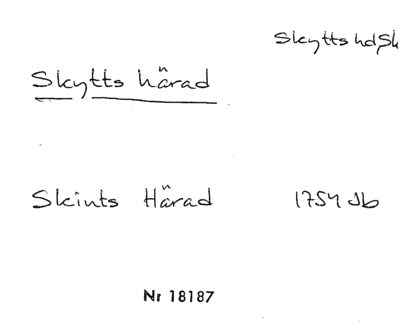 Skytts hd, Sk
Skytts härad
Skints Härad 1754 Jb
Nr 18187